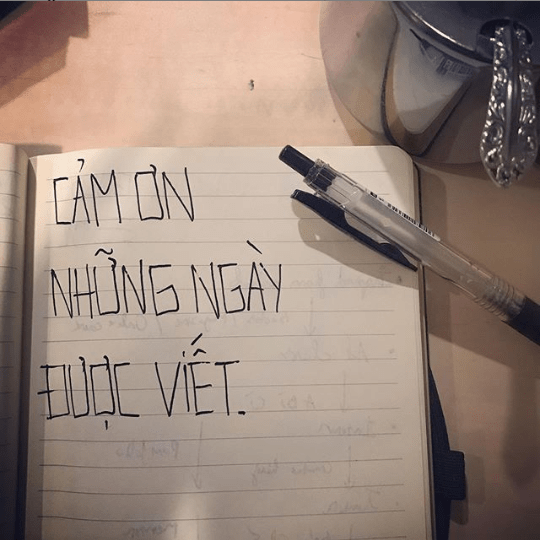 CẢM ƠN
NHỮNG NGÀY
ĐƯỢC VIẾT.